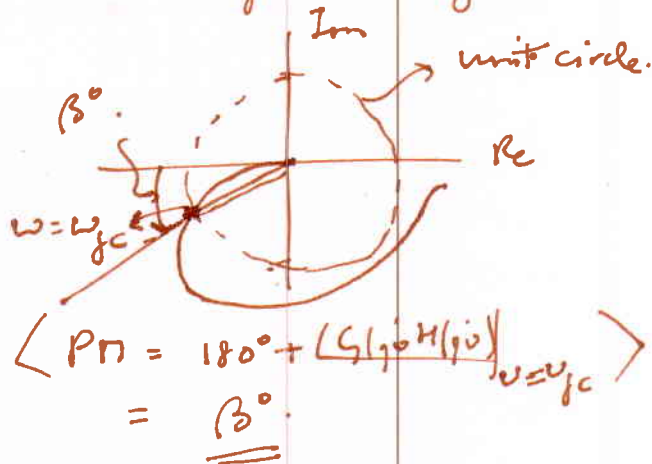 Im
unit circle.
β°.
Re
ω=ωgc
< PM = 180° + ∠G(jω)H(jω)|ω=ωgc >
= β°